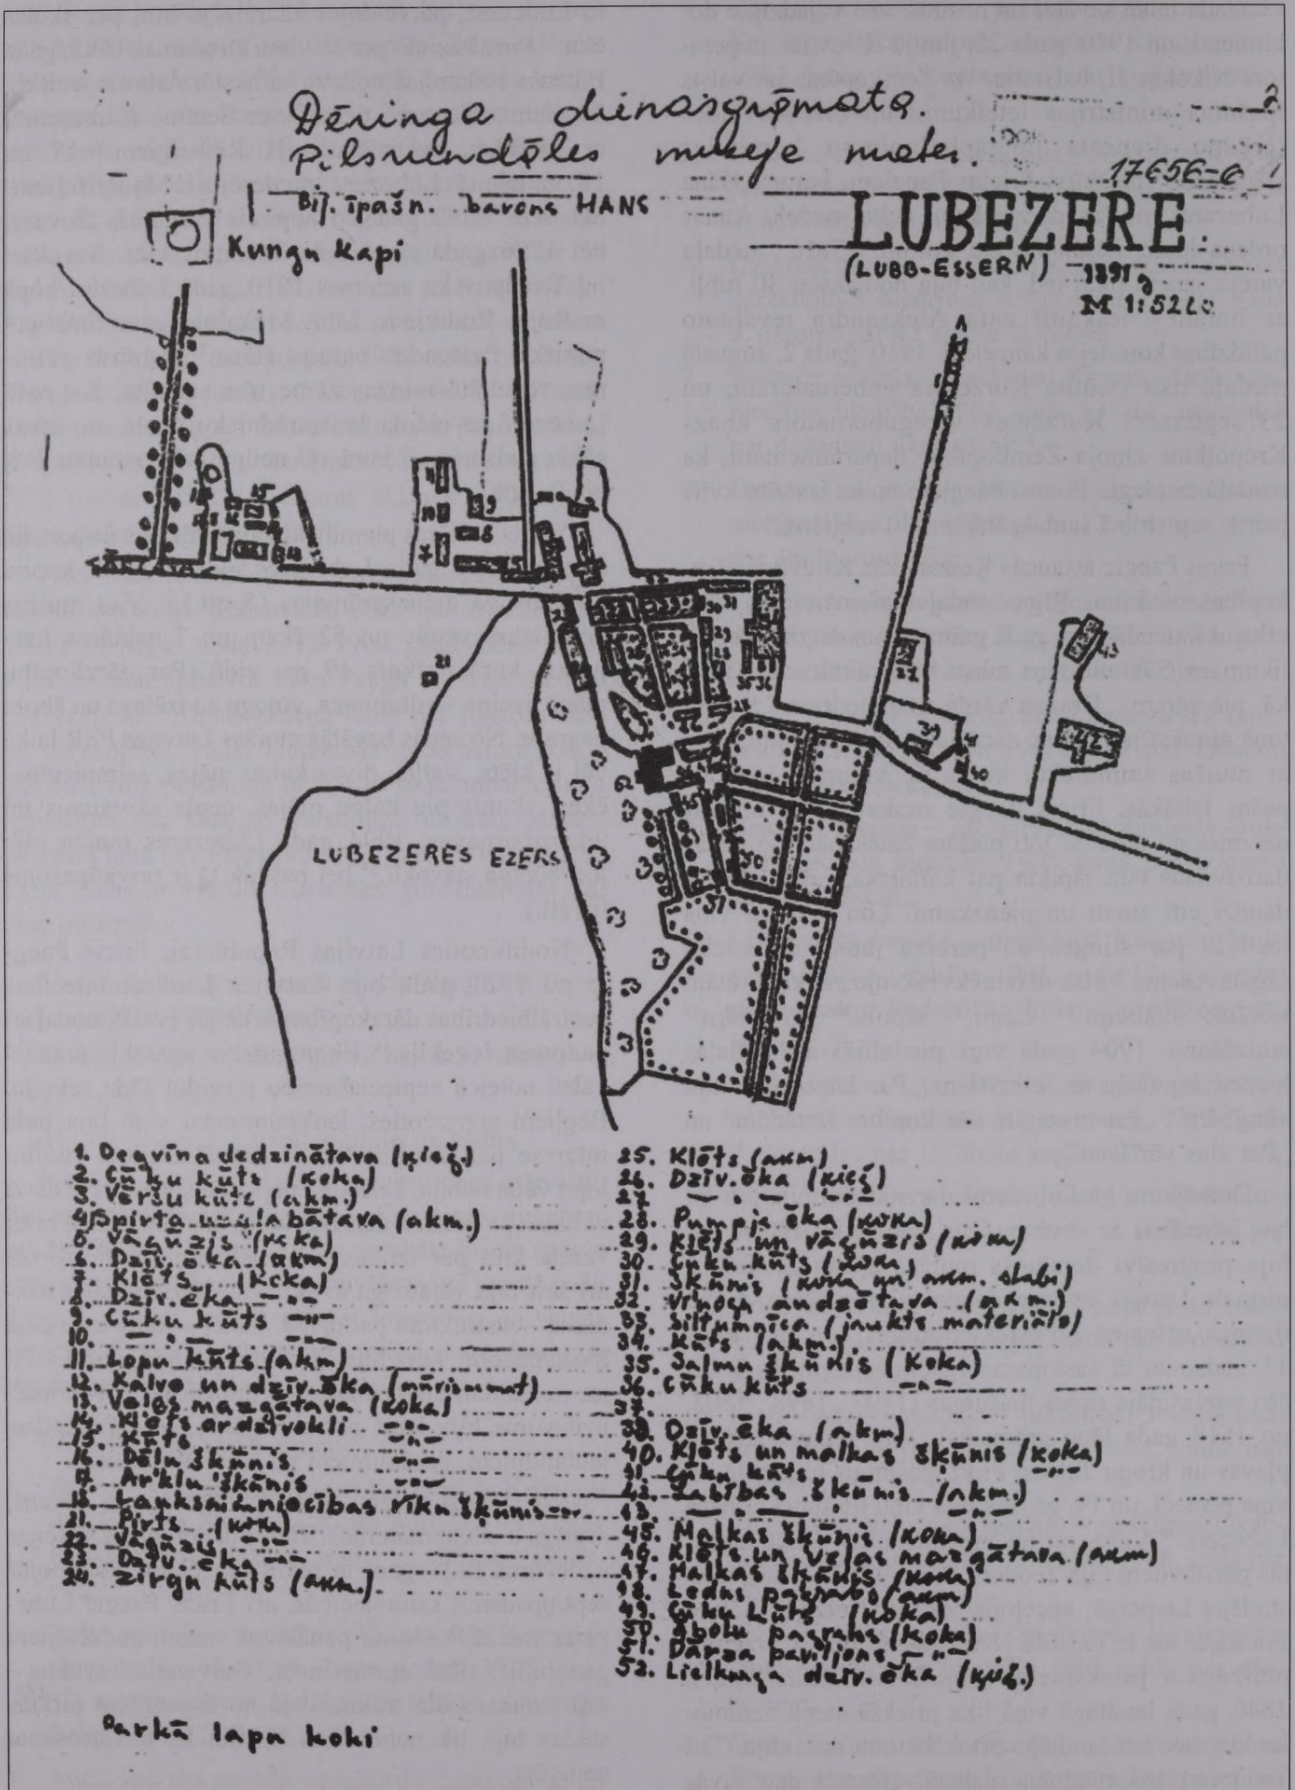 Dēringa dienasgrāmata
Pilsrundāles muzeja mater.
2
17656=6
Bij. īpašn. barons HANS
LUBEZERE.
(LUBB-ESSERN)
189 g
M 1:52
Kungu Kapi
21
LUBEZERES EZERS
50
51
52
42
43
40
1. Degvīna dedzinātava (ķieģ.)
2. Cūku kūts (koka)
3. Vēršu kūts (akm.)
4. Spirta uzglabātava (akm.)
5. Vāgūzis (koka)
6. Dzīv. ēka (akm)
7. Klēts (koka)
8. Dzīv. ēka -"-
9. Cūku kūts -"-
10. -"- -"- -"-
11. Lopu kūts (akm)
12. Kalve un dzīv. ēka
13. Veļas mazgātava (koka)
14. Klēts ar dzīvokli -"-
15. Kūts -"-
16. Dēļu šķūnis -"-
17. Arklu šķūnis -"-
18. Lauksaimniecības rīku šķūnis -"-
21. Pirts (koka)
22. Vāgūzis -"-
23. Dzīv. ēka -"-
24. Zirgu kūts (akm.)
25. Klēts (akm)
26. Dzīv. ēka (ķieģ)
27. -"- -"- -"-
28. Pumpja ēka (koka)
29. Klēts un vāgūzis (koka)
30. Cūku kūts (koka)
31. Šķūnis (koka un akm. stabi)
32. Vīnogu audzētava (akm)
33. Siltumnīca (jaukts materiāls)
34. Kūts (akm.)
35. Salmu šķūnis (koka)
36. Cūku kūts -"-
37.
38. Dzīv. ēka (akm)
40. Klēts un malkas šķūnis (koka)
41. Cūku kūts -"-
42. Labības šķūnis (akm.)
43. -"- -"- -"-
45. Malkas šķūnis (koka)
46. Klēts un veļas mazgātava (akm)
47. Malkas šķūnis (koka)
48. Ledus pagrabs (akm)
49. Cūku kūts (koka)
50. Ābolu pagrabs (koka)
51. Dārza paviljons -"-
52. Lielkunga dzīv. ēka (ķieģ.)
Parkā lapu koki